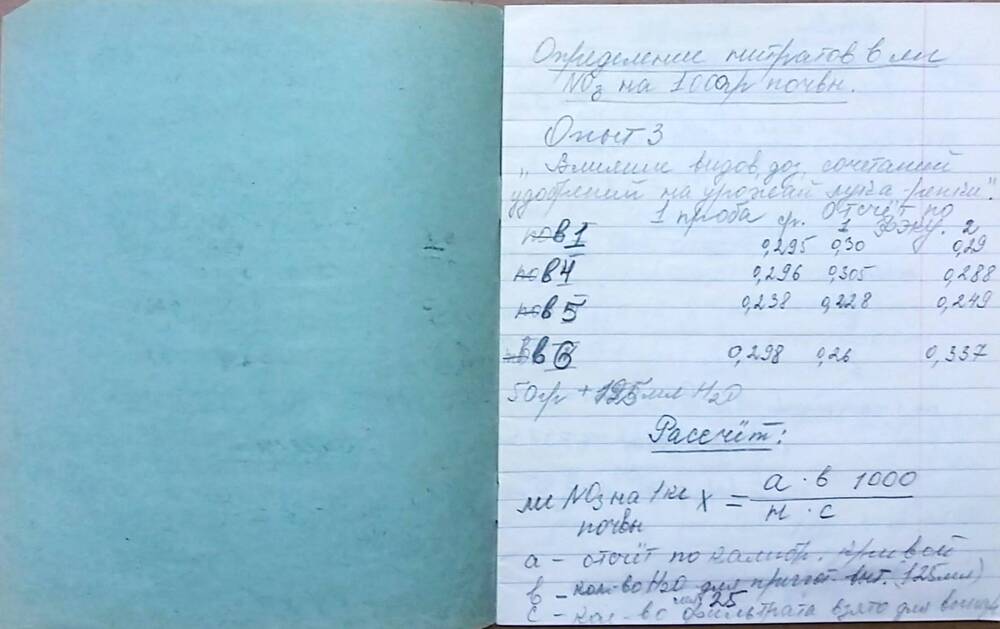 Определение нитратов в мг
NO3 на 1000гр почвы.
Опыт 3
„Влияние видов, доз, сочетаний
удобрений на урожай лука-репки".
1 проба ср. Отсчёт по
1 ФЭКу. 2
в 1 0,295 0,30 0,29
в 4 0,296 0,305 0,288
в 5 0,238 0,228 0,249
в 6 0,298 0,26 0,337
50гр + 125мл H2O
Рассчёт:
мг NO3 на 1кг X = а · в 1000
почвы н · с
а – отсчёт по калибр. кривой
в – кол-во H2O для пригот. выт. (125мл)
25
с – кол-во фильтрата взято для